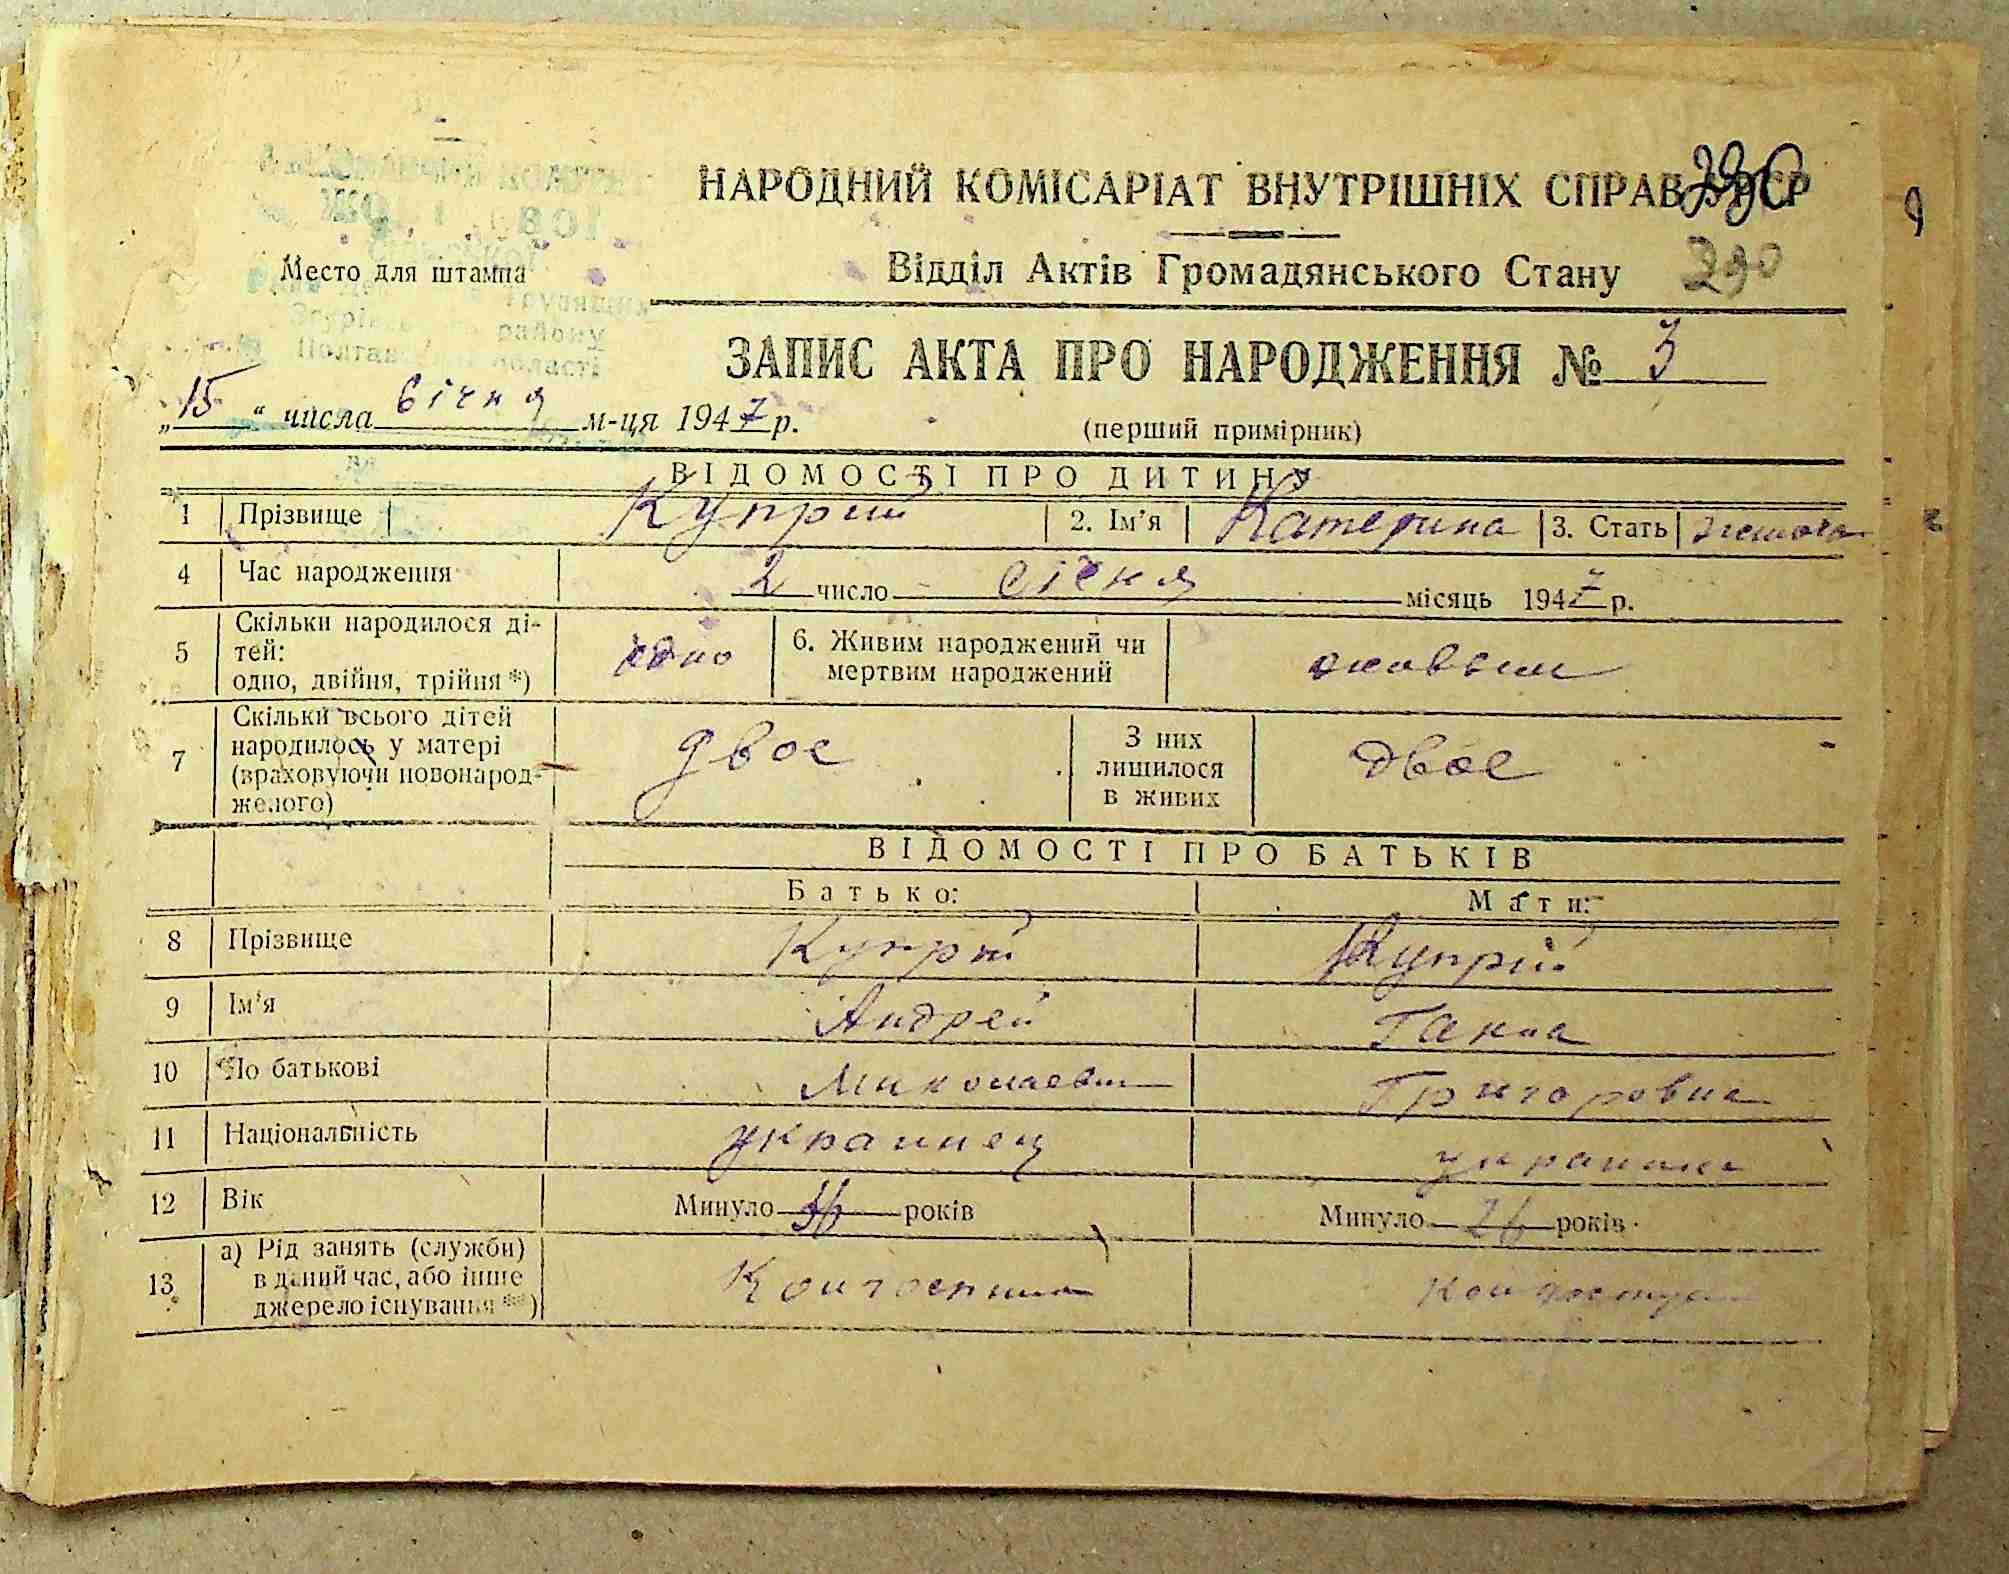 НАРОДНИЙ КОМІСАРІАТ ВНУТРІШНІХ СПРАВ УРСР
Відділ Актів Громадянського Стану 290
Место для штампа
трудящих
району
Полтавської області
ЗАПИС АКТА ПРО НАРОДЖЕННЯ № 3
„15“ числа січня м-ця 1947 р.
(перший примірник)
ВІДОМОСТІ ПРО ДИТИНУ
1 Прізвище Купрій 2. Ім'я Катерина 3. Стать жіноча
4 Час народження 2 число січня місяць 1947 р.
5 Скільки народилося ді-
тей:
одно, двійня, трійня *) одно
6. Живим народжений чи
мертвим народжений живым
7 Скільки всього дітей
народилось у матері
(враховуючи новонарод-
желого) двое
З них
лишилося
в живих двое
ВІДОМОСТІ ПРО БАТЬКІВ
Батько: Мати:
8 Прізвище Купрій Купрій
9 Ім'я Андрей Ганна
10 По батькові Миколаевич Григоровна
11 Національність украинец украинка
12 Вік Минуло 36 років Минуло 26 років
13 а) Рід занять (служби)
в даний час, або інше
джерело існування **) Колгоспник